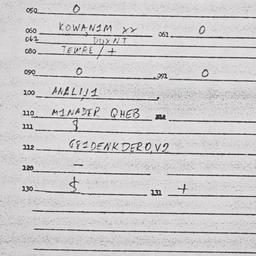 050 0
060 KOWANIM XY 061 0
062 DUXNT
080 TEWRE / +
090 0 091 0
100 ANALIJ1
110 M1NADER QHEB
111 $
112 G81DENKDERO,V2
120 —
130 $ 131 +